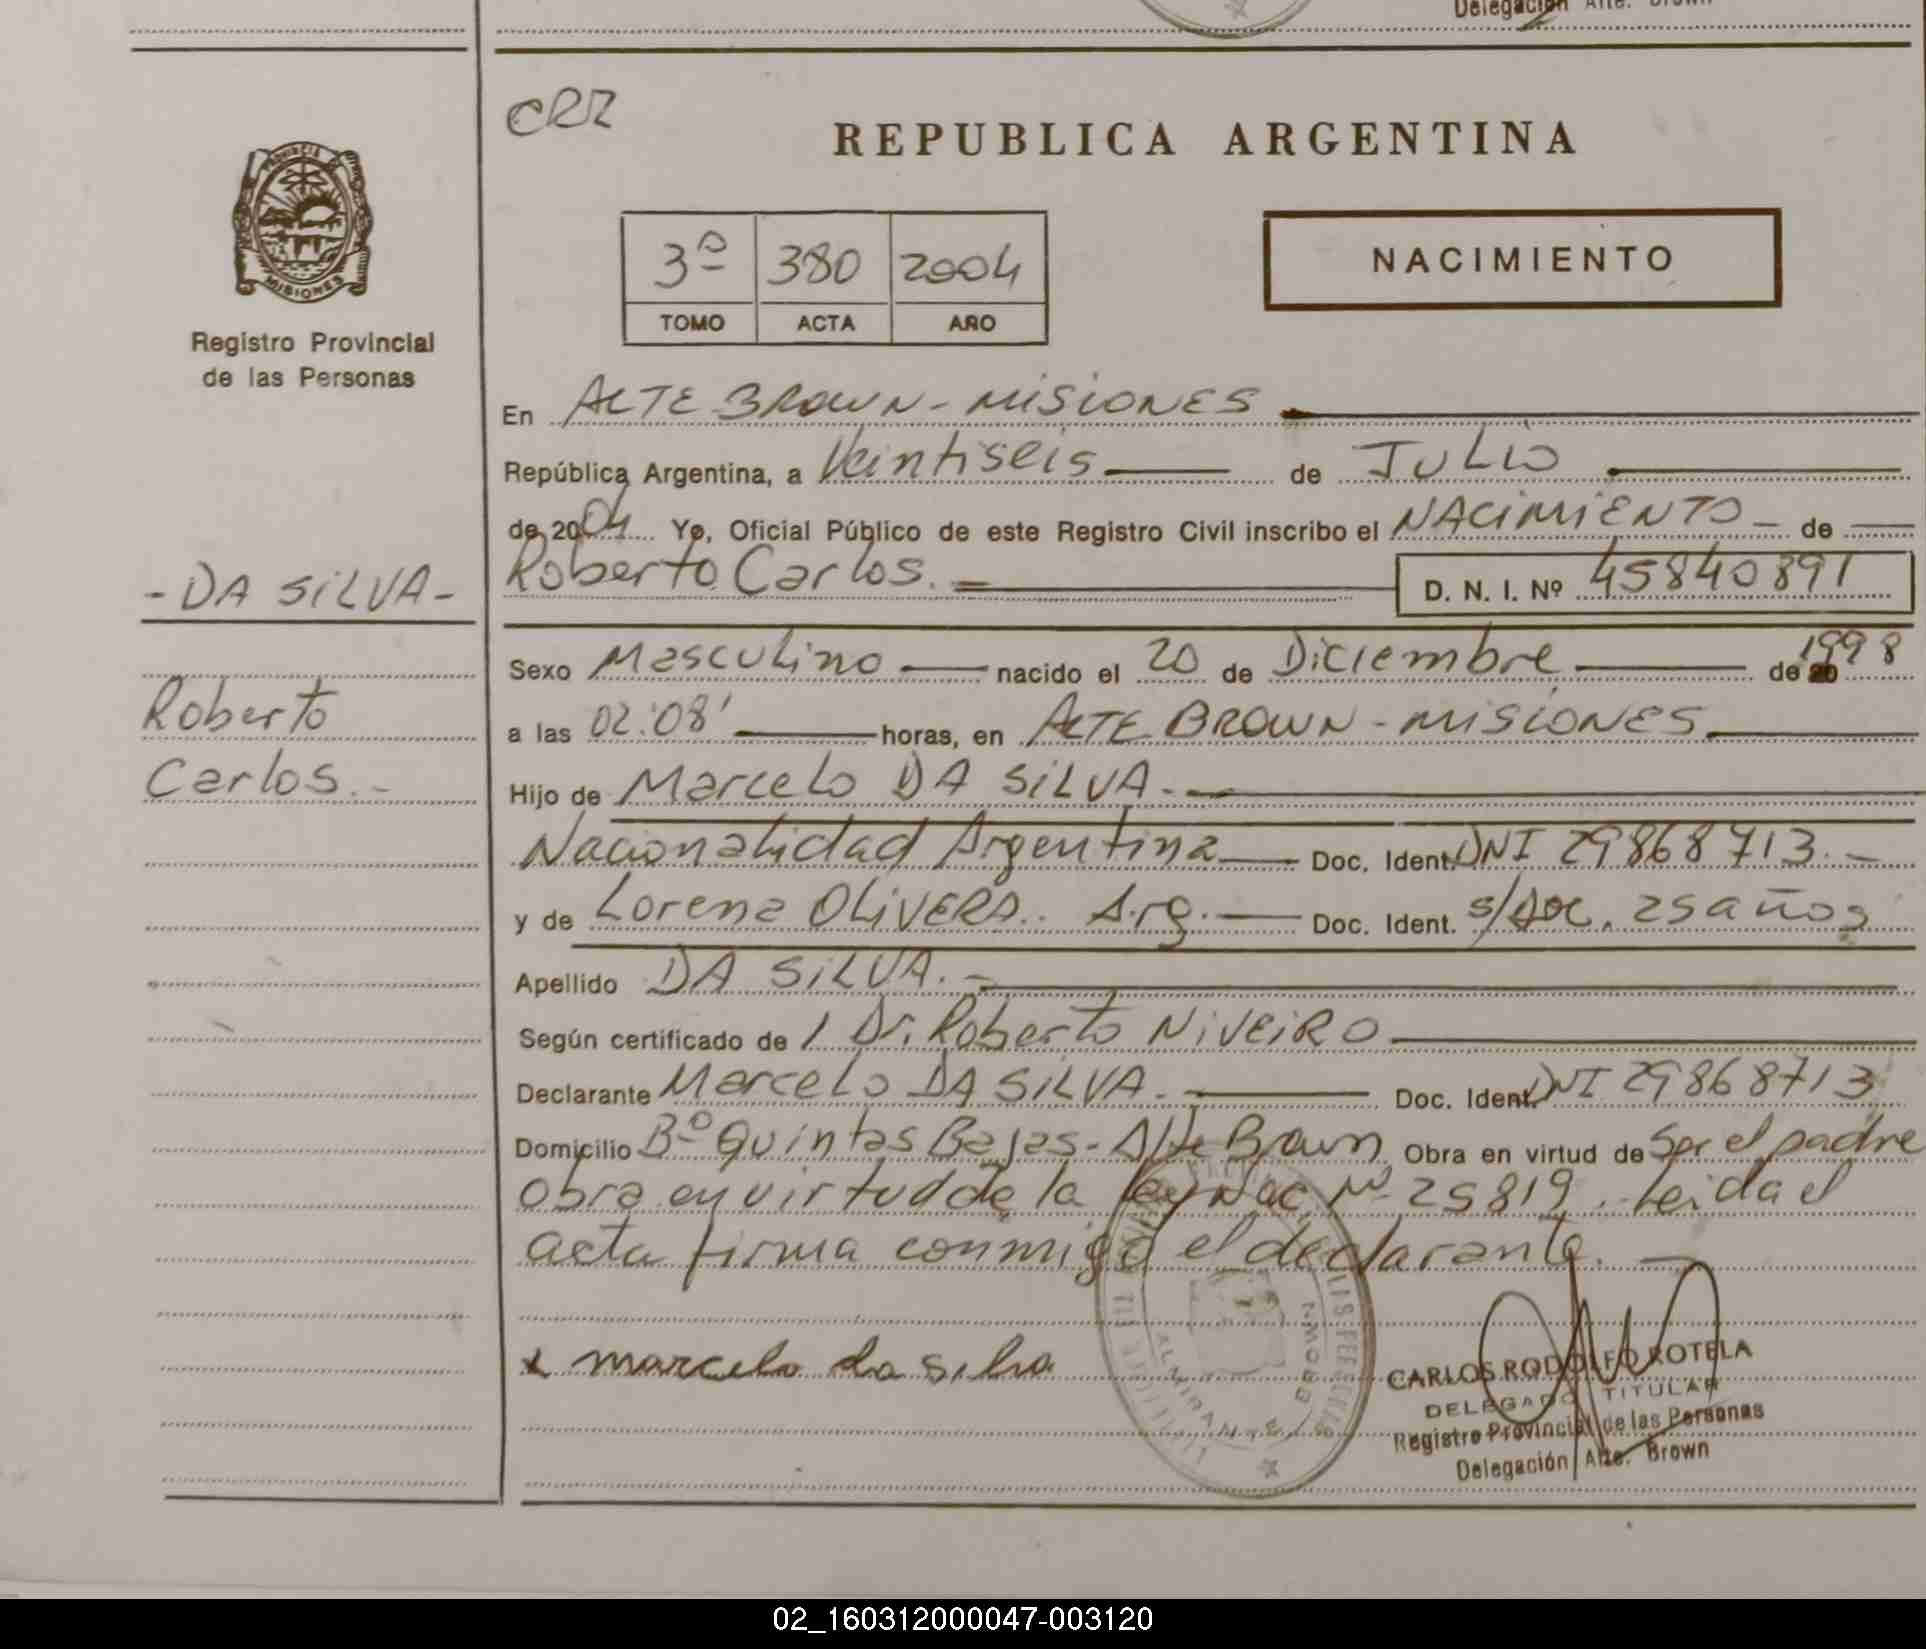 Delegación Alte. Brown
CRZ
REPUBLICA ARGENTINA
PROVINCIA
MISIONES
3º 380 2004
TOMO ACTA AÑO
NACIMIENTO
Registro Provincial
de las Personas
En ALTE BROWN - MISIONES
República Argentina, a Veintiseis de JULIO
de 2004 Yo, Oficial Público de este Registro Civil inscribo el NACIMIENTO - de
- DA SILVA -
Roberto Carlos. D. N. I. Nº 45840891
Sexo Masculino nacido el 20 de Diciembre de 20 1998
Roberto
a las 02:08' horas, en ALTE BROWN - MISIONES
Carlos. -
Hijo de Marcelo DA SILVA. -
Nacionalidad Argentina Doc. Ident. DNI 29868713. -
y de Lorena OLIVERA.. Arg. Doc. Ident. s/doc. 25 años
Apellido DA SILVA. -
Según certificado de / Dr. Roberto NIVEIRO
Declarante Marcelo DA SILVA. Doc. Ident. DNI 29868713
Domicilio Bº Quintas Bajas - Alte Brown Obra en virtud de Ser el padre
obra en virtud de la ley Nac. Nº 25819. Leida el
acta firma conmigo el declarante. -
x marcelo da silva
ALMIRANTE BROWN
CARLOS RODOLFO ROTELA
DELEGADO TITULAR
Registro Provincial de las Personas
Delegación Alte. Brown
02_160312000047-003120